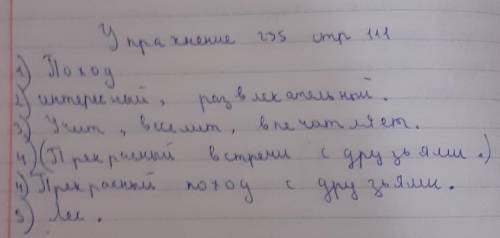 Упражнение 235 стр 111
1) Поход
2) интересный, развлекательный.
3) Учит, веселит, впечатляет.
4) (Прекрасный встречи с друзьями.)
4) Прекрасный поход с друзьями.
5) Лес.